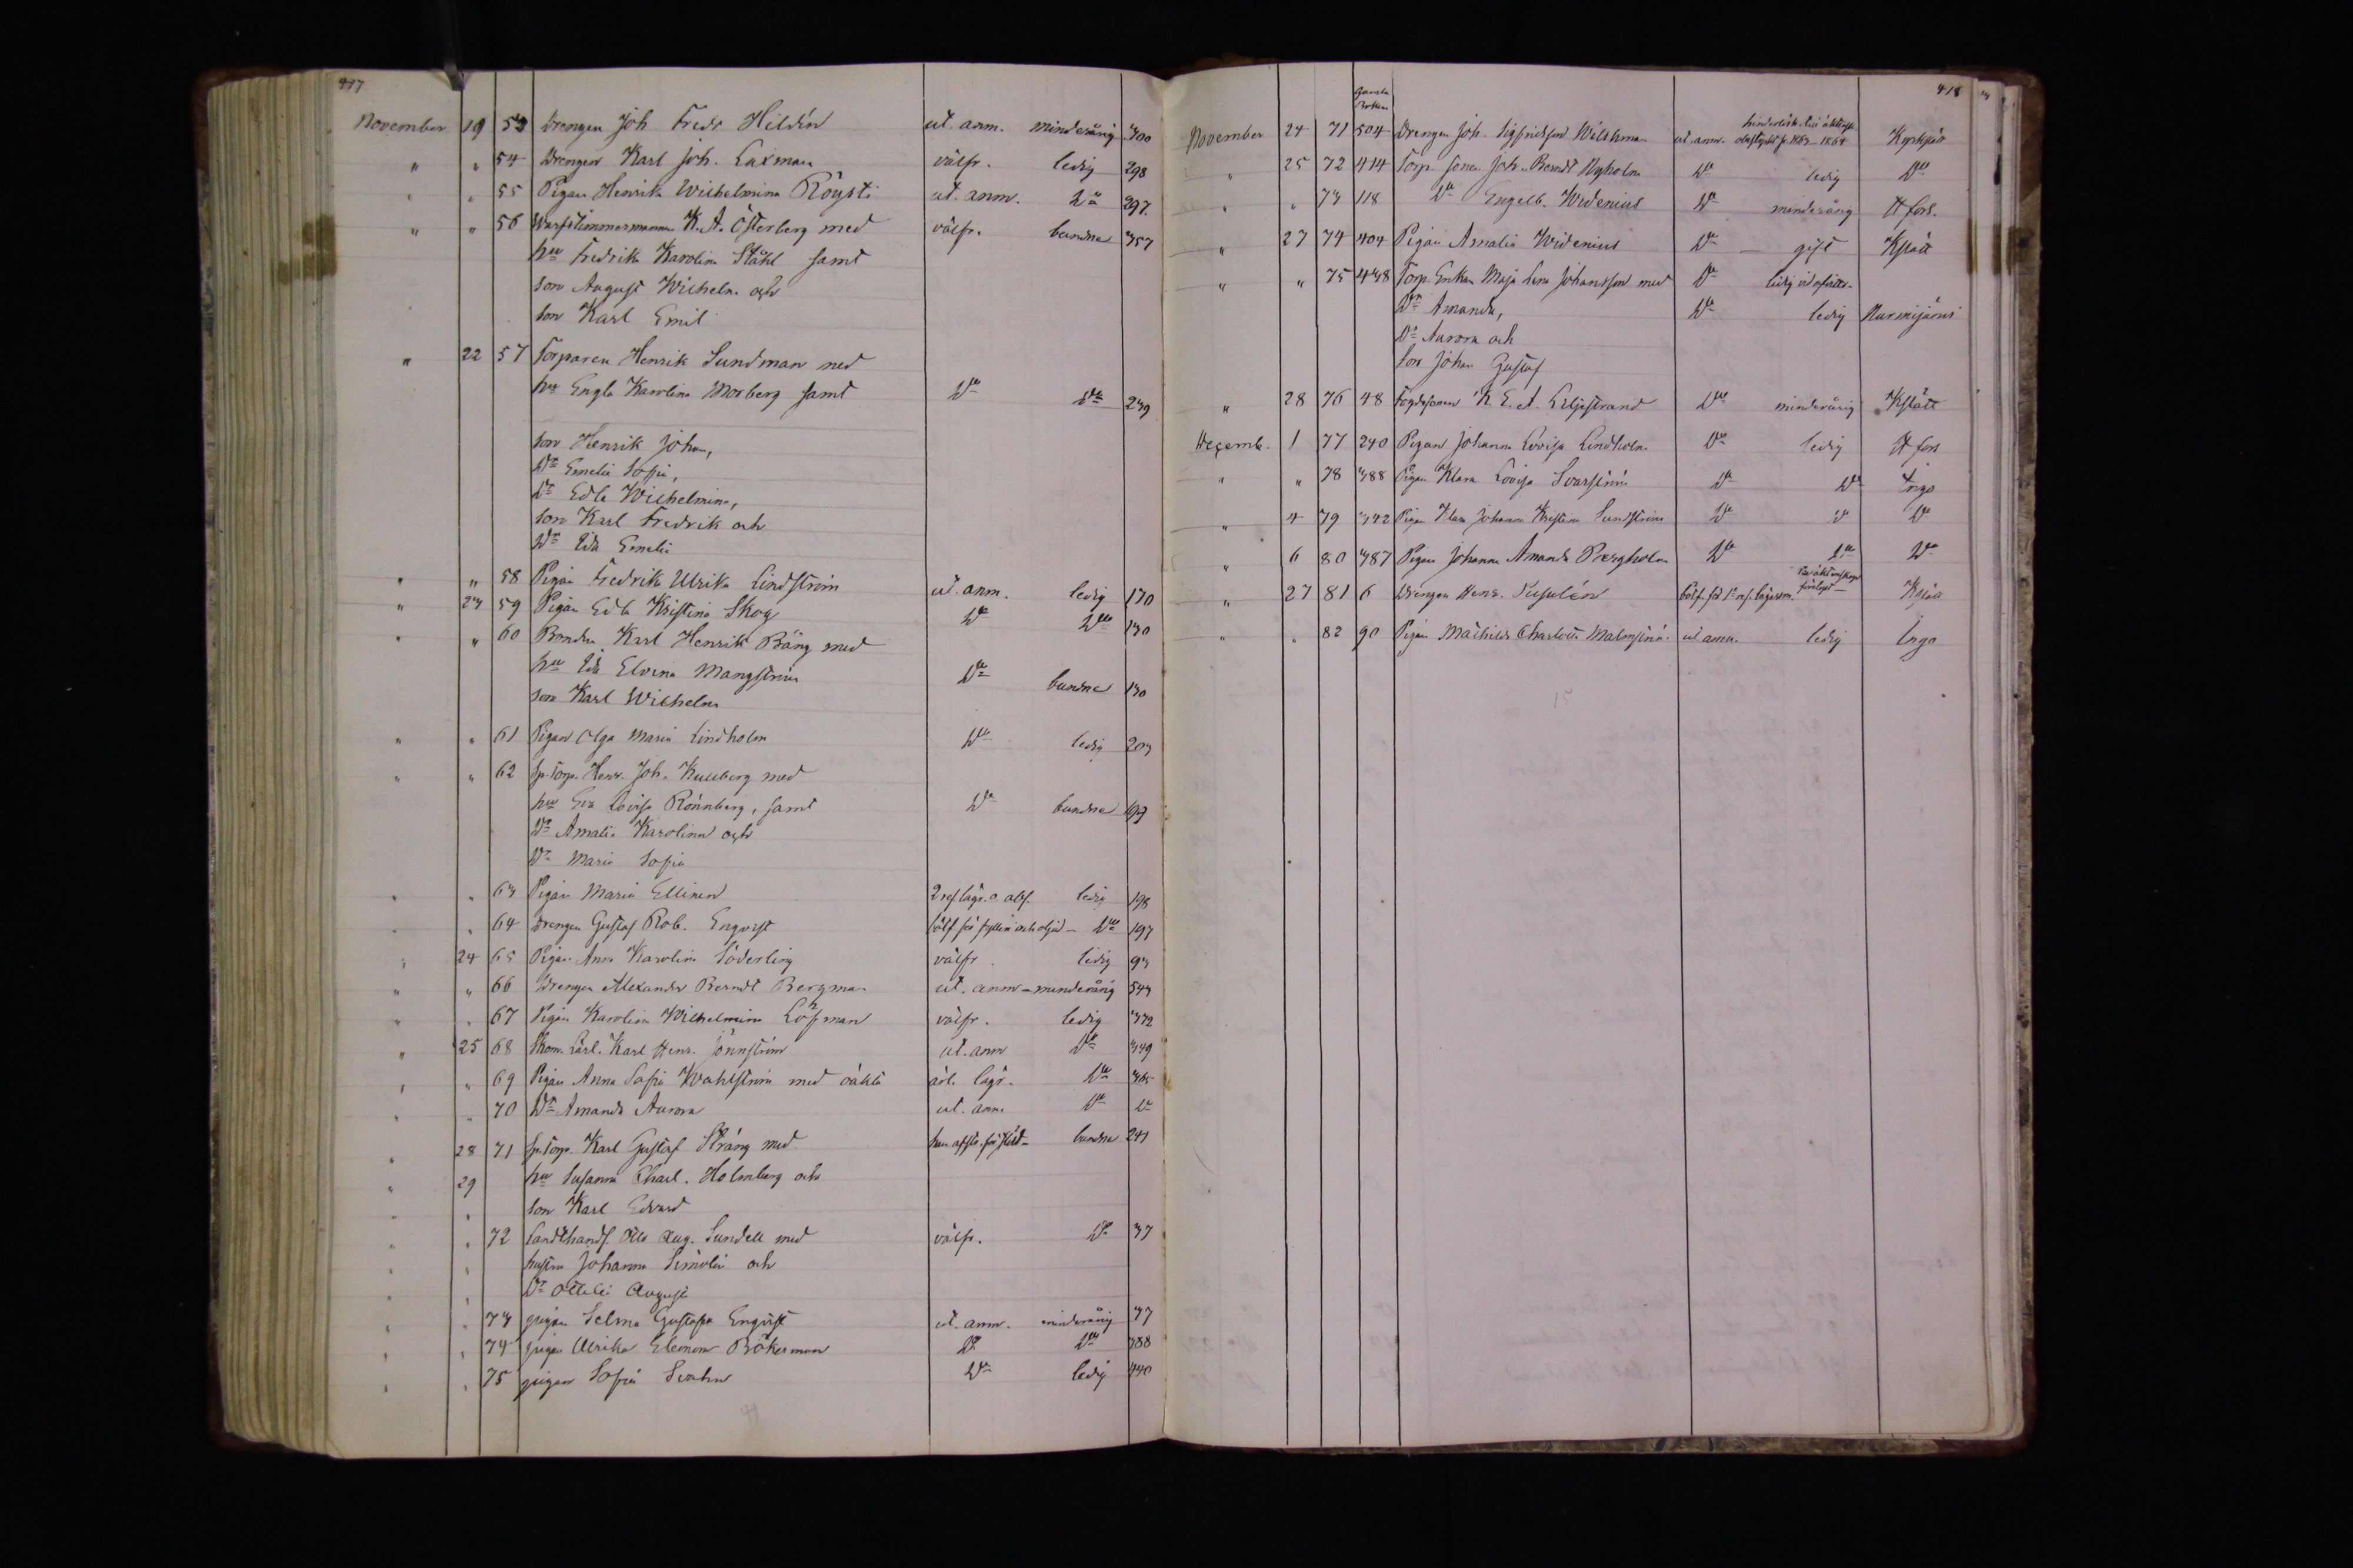 417
November 19 53 Drengen Joh Fredr Hildén ut. anm. minderårig 300
" " 54 Drengen Karl Joh. Laxman välfr. ledig 298
" " 55 Pigan Henrika Wilhelmina Röysti ut. anm. Do 297
" " 56 K. A. Österberg med välfr. bundne 357
hu Fredrika Karolina Ståhl samt
son August Wilhelm och
son Karl Emil
" 22 57 Torparen Henrik Sundman med
hu Engla Karolina Morberg samt Do Do 239
son Henrik Johan,
Dr Emelie Sofia,
Dr Edla Wilhelmina,
son Karl Fredrik och
Dr Ida Emelie
" " 58 Pigan Fredrika Ulrika Lindström ut. anm. ledig 170
" 23 59 Pigan Edla Kristina Skog Do Do 130
" " 60 Bonden Karl Henrik Bäng med
hu Ida Elvina Mangström Do bundne 130
son Karl Wilhelm
" " 61 Pigan Olga Maria Lindholm Do ledig 203
" " 62 Sp. Torp. Henr. Joh. Kullberg med
hu Eva Lovisa Rönnberg, samt Do bundne 193
Dr Amalia Karolina och
Dr Maria Sofia
" " 63 Pigan Maria Ellinen ledig 198
" " 64 Drengen Gustaf Rob. Enqvist Do 197
" 24 65 Pigan Anna Karolina Söderling välfr. ledig 93
" " 66 Drengen Alexander Berndt Bergman ut. anm - minderårig 543
" " 67 Pigan Karolina Wilhelmina Löfman välfr. ledig 372
" 25 68 Skom. Lärl. Karl Henr. Jönnström ut. anm Do 349
" " 69 Pigan Anna Sofia Wahlström med oäkta Do 365
" " 70 Dr Amanda Aurora ut. anm. Do Do
" 28 71 Sp. Torp. Karl Gustaf Sträng med bundne 241
" 29 hu Susanna Charl. Holmberg och
son Karl Edvard
" " 72 Landthandl. Otto Aug. Sundell med välfr. Do 37
hustru Johanna Simolin och
Dr Ottilia Augusta
" " 73 pigan Selma Gustafva Enqvist ut. anm. minderårig 77
" " 74 pigan Ulrika Eleonora Böckerman Do Do 388
" " 75 pigan Sofia Svahn Do ledig 440
418
Gamla Boken
November 24 71 504 Drengen Joh. Sigfridsson Wilkman ut anm. Kyrkslä
" 25 72 414 Torp. sonen Joh. Berndt Nyholm Do ledig Do
" " 73 118 Do Engelb. Widenius Do minderårig H:fors.
" 27 74 404 Pigan Amalia Widenius Do gift Kslätt
" " 75 438 Torp. Enkan Maja Lena Johansson med Do
Dr Amanda, Do ledig Nurmijärvi
Dr Aurora och
Son Johan Gustaf
" 28 76 48 Fogdesonen K. E. A. Liljestrand Do minderårig Kslätt
Decemb. 1 77 240 Pigan Johanna Lovisa Lindholm Do ledig H:fors
" " 78 388 Pigan Klara Lovisa Svarström Do Do Ingo
" 4 79 342 Pigan Klara Johanna Kristina Sundström Do Do Do
" 6 80 387 Pigan Johanna Amanda Bergholm Do Do Do
" 27 81 6 Drengen Henr. Kslätt
" " 82 90 Pigan Mathilda Charlotta Malmström ut anm. ledig Ingo
15